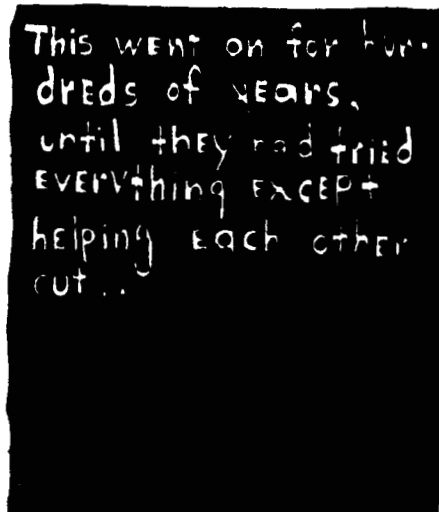 This went on for hun-
dreds of years,
until they had tried
everything except
helping each other
out...